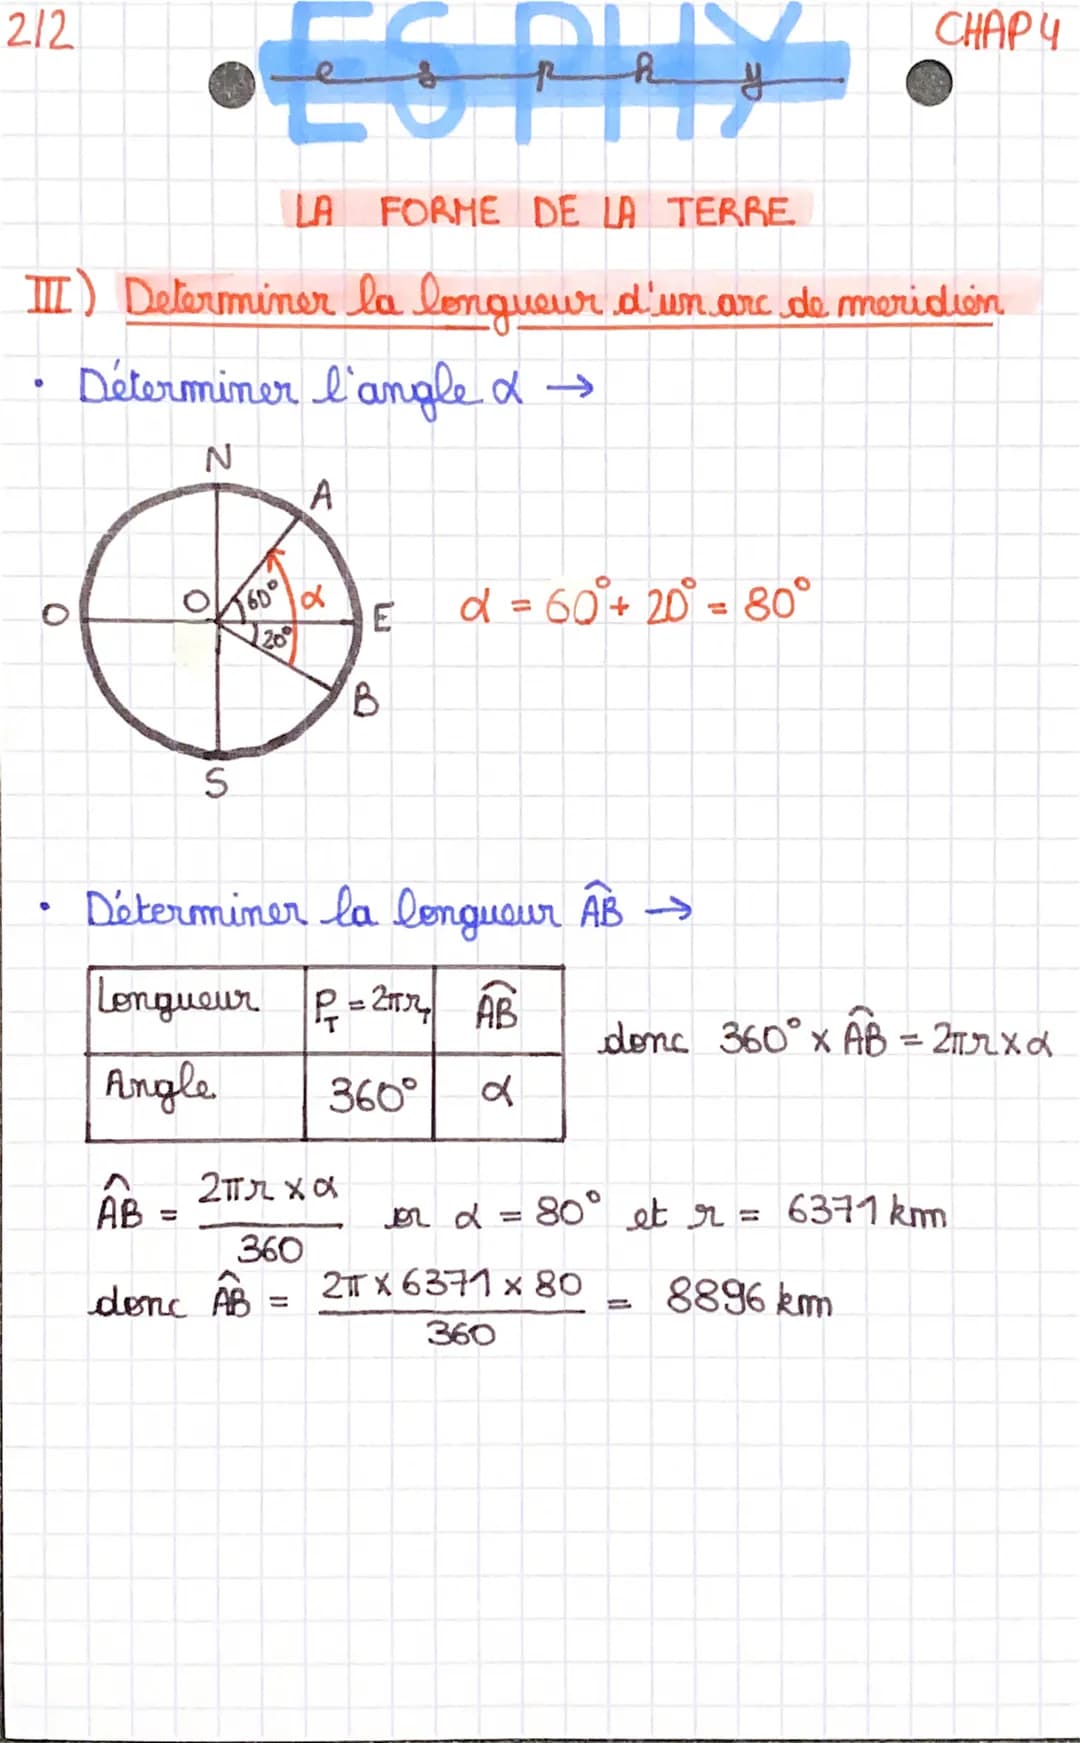 2/2
CHAP 4
ES PHY
e s p h y
LA FORME DE LA TERRE
III) Determiner la longueur d'un arc de meridien
• Déterminer l'angle α →
N
A
O
O
60°
α
E
20°
B
S
α = 60° + 20° = 80°
• Déterminer la longueur A͡B →
Longueur P_T = 2πr_T A͡B
Angle 360° α
donc 360° x A͡B = 2πr x α
A͡B = 2πr x α / 360 or α = 80° et r = 6371 km
donc A͡B = 2π x 6371 x 80 / 360 = 8896 km